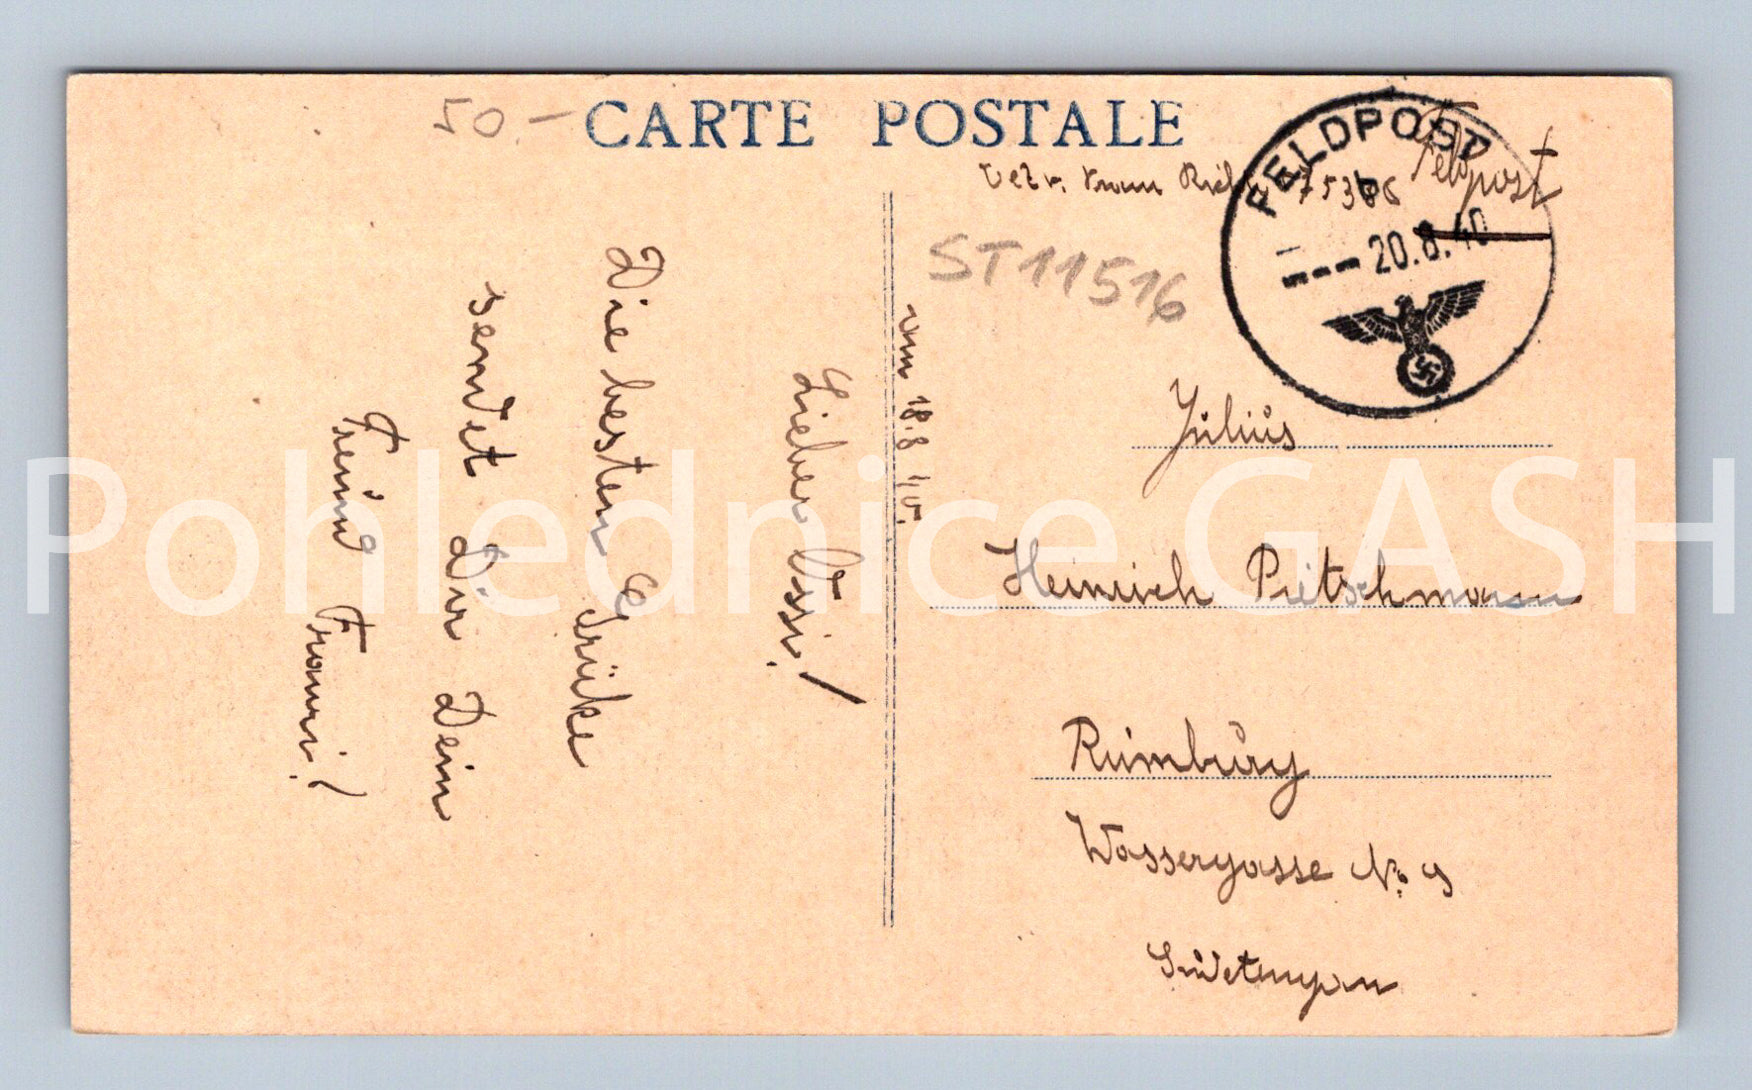 50.-
CARTE POSTALE
Feldpost
FELDPOST
b
20.8.40
ST11516
vom 18.8.40.
Lieber Ossi!
Die besten Grüße
sendet Dir Dein
Freund Franzi!
Julius
Heinrich Pietschmann
Rumburg
Wassergasse No 9
Sudetengau
Pohlednice GASH